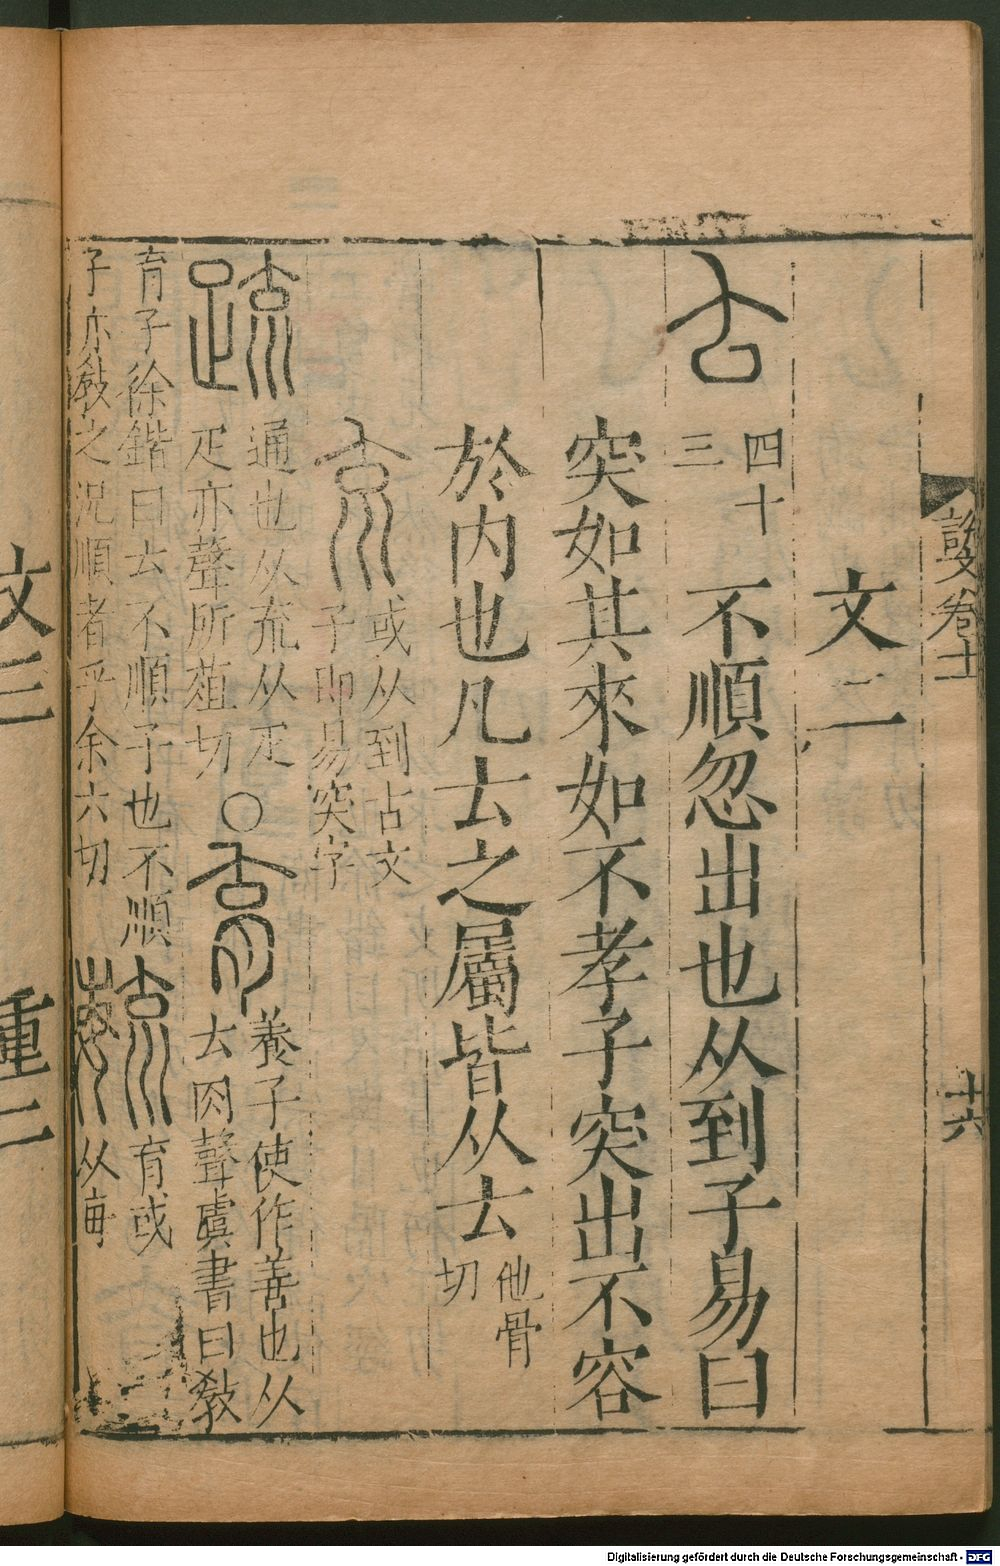 說文卷十一
十六
文二
𠫓
四十
三
不順忽出也从到子易曰
突如其來如不孝子突出不容
於内也凡𠫓之屬皆从𠫓
他骨
切
㐬
或从到古文
子即易突字
疏
通也从㐬从疋
疋亦聲所菹切
○
育
養子使作善也从
𠫓肉聲虞書曰教
育子徐鍇曰𠫓不順子也不順
子亦教之況順者乎余六切
毓
育或
从每
文三
重二